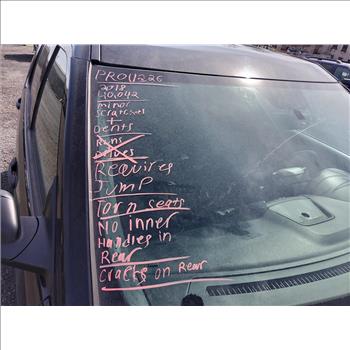 PRO11226
2018
40,042
minor
scratches
+
Dents
Runs
Drives
Requires
Jump
Torn seats
No inner
Handles in
Rear
Cracks on Rear